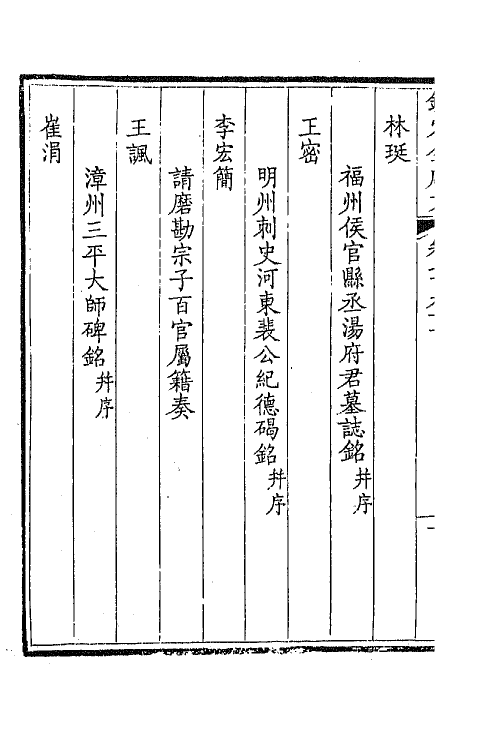 林珽
福州侯官縣丞湯府君墓誌銘 幷序
王密
明州刺史河東裴公紀德碣銘 幷序
李宏簡
請磨勘宗子百官屬籍奏
王諷
漳州三平大師碑銘 幷序
崔涓